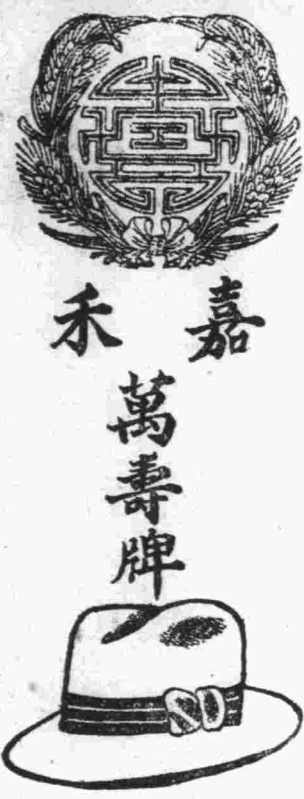 嘉禾
萬壽牌